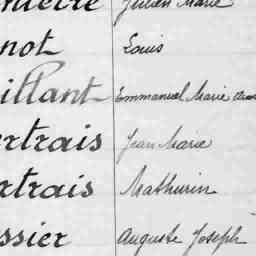 Julien Marie
not Louis
illant Emmanuel Marie
ertrais Jean Marie
rtrais Mathurin
ssier Auguste Joseph